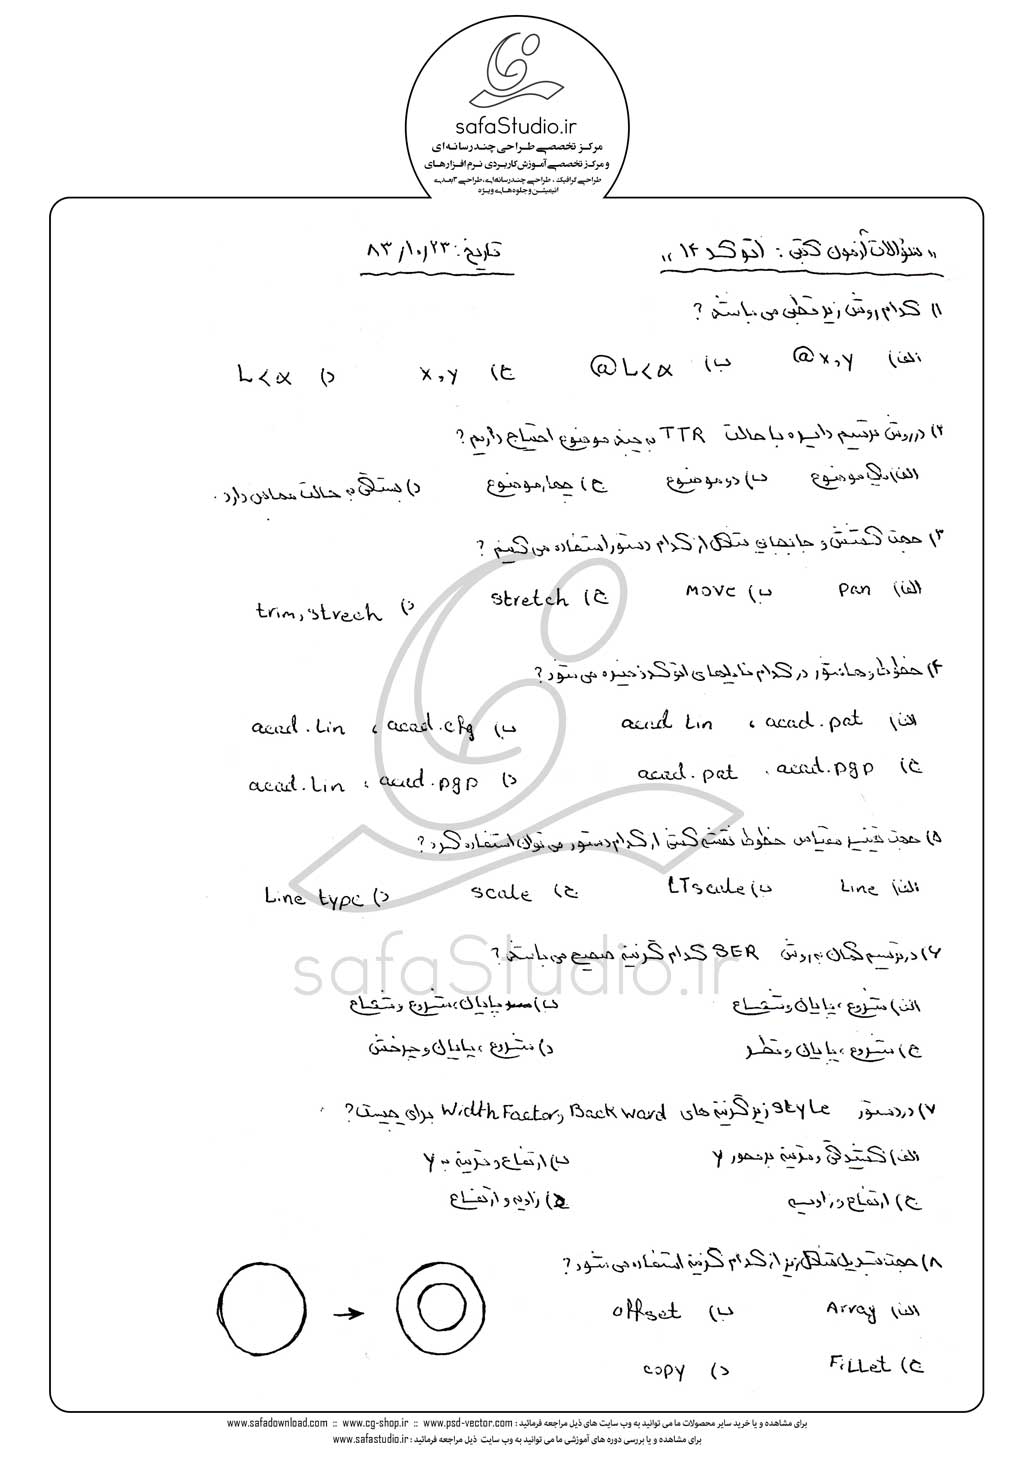 safaStudio.ir
مرکز تخصصی طراحی چندرسانه‌ای
و مرکز تخصصی آموزش کاربردی نرم افزارهای
طراحی گرافیک ، طراحی چندرسانه‌ای، طراحی ۳بعدی
انیمیشن و جلوه‌های ویژه
,, سؤالات آزمون کتبی : اتوکد ۱۴ ,, تاریخ : ۸۳/۱۰/۲۳
۱) کدام روش زیر قطبی می باشد ؟
الف) @x,y ب) @L<α ج) x,y د) L<α
۲) در روش ترسیم دایره با حالت TTR به چند موضوع احتیاج داریم ؟
الف) یک موضوع ب) دو موضوع ج) چهار موضوع د) بستگی به حالت مماس دارد .
۳) جهت کشش و جابجایی شکل از کدام دستور استفاده می کنیم ؟
الف) pan ب) move ج) stretch د) trim,strech
۴) خطوط و هاشور در کدام فایلهای اتوکد ذخیره می شود ؟
الف) acad.pat ، acad Lin ب) acad.cfg ، acad.Lin
ج) acad.pgp ، acad.pat د) acad.pgp ، acad.Lin
۵) جهت تغییر مقیاس خطوط نقشه کشی از کدام دستور می توان استفاده کرد ؟
الف) Line ب) LTscale ج) scale د) Line type
safaStudio.ir
۶) در ترسیم کمان به روش SER کدام گزینه صحیح می باشد ؟
الف) شروع ، پایان و شعاع ب) پایان ، شروع و شعاع
ج) شروع ، پایان و قطر د) شروع ، پایان و چرخش
۷) در دستور style زیر گزینه های Width Factor, Back ward برای چیست ؟
الف) کشیدگی و قرینه بر محور y ب) ارتفاع و قرینه به y
ج) ارتفاع و زاویه د) زاویه و ارتفاع
۸) جهت تبدیل شکل زیر از کدام گزینه استفاده می شود ؟
الف) Array ب) offset
ج) FiLLet د) copy
برای مشاهده و یا خرید سایر محصولات ما می توانید به وب سایت های ذیل مراجعه فرمائید : www.safadownload.com :: www.cg-shop.ir :: www.psd-vector.com
برای مشاهده و یا بررسی دوره های آموزشی ما می توانید به وب سایت ذیل مراجعه فرمائید : www.safastudio.ir